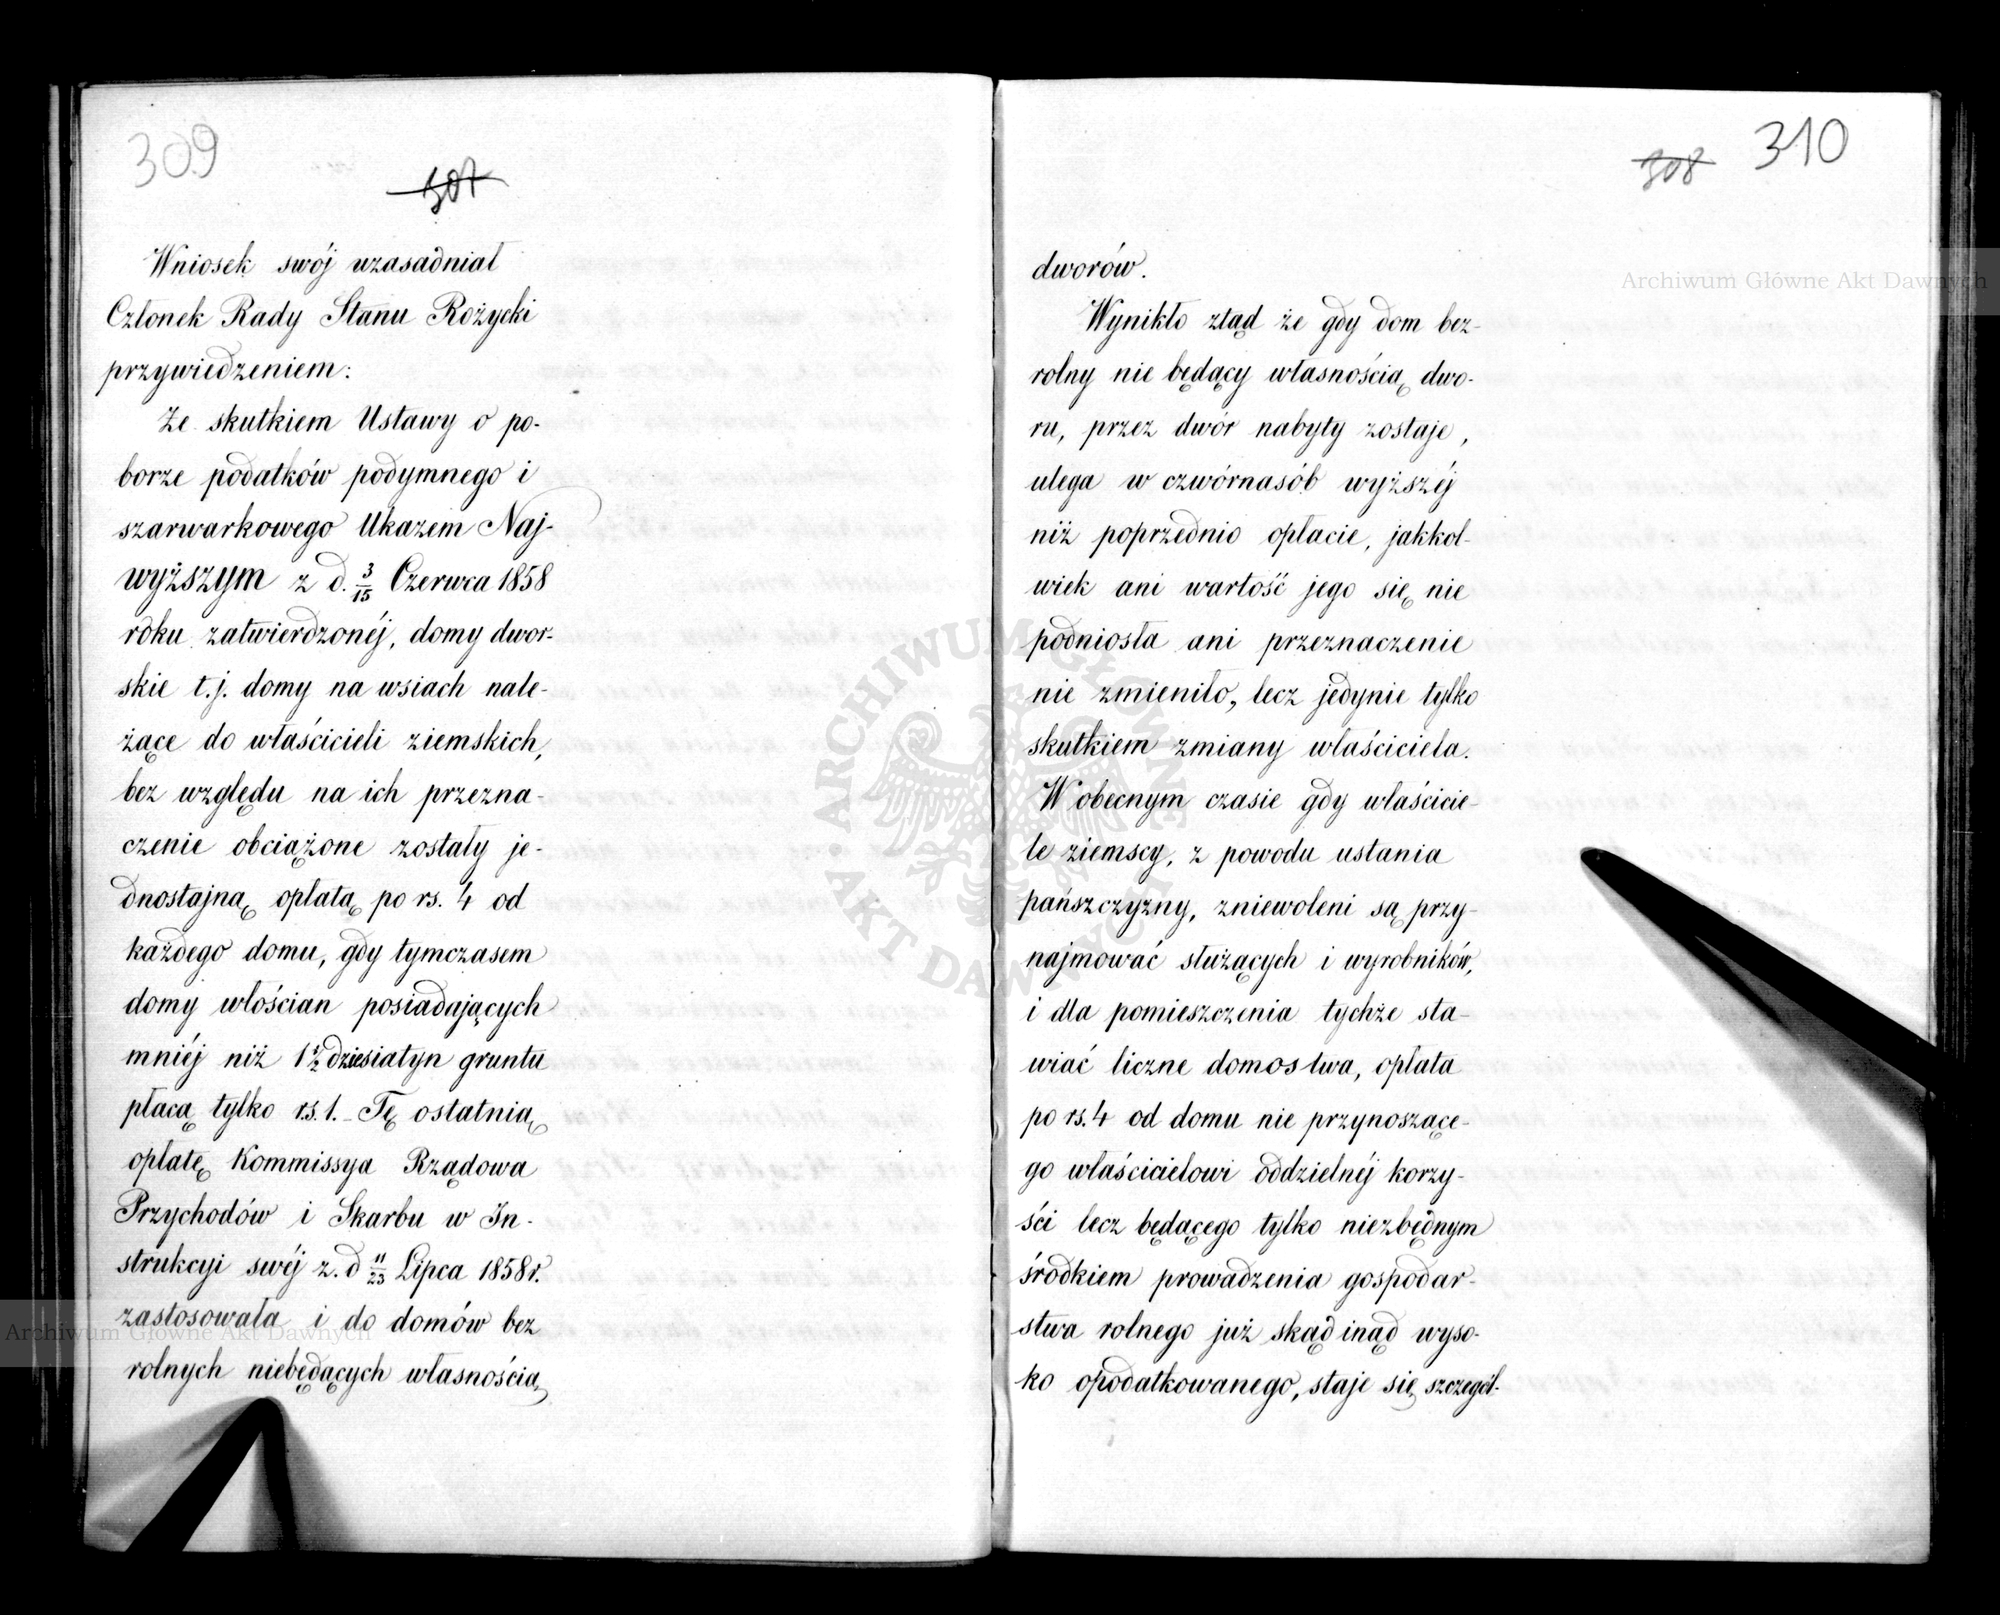 309
307
Wniosek swój uzasadniał
Członek Rady Stanu Rożycki
przywiedzeniem:
Że skutkiem Ustawy o po-
borze podatków podymnego i
szarwarkowego Ukazem Naj-
wyższym z d. 3/15 Czerwca 1858
roku zatwierdzonéj, domy dwor-
skie t.j. domy na wsiach nale-
żące do właścicieli ziemskich,
bez względu na ich przezna-
czenie obciążone zostały je-
dnostajną opłatą po rs. 4 od
każdego domu, gdy tymczasem
domy włościan posiadających
mniéj niż 1 1/2 dziesiatyn gruntu
płacą tylko rs. 1. – Tę ostatnią
opłatę Kommissya Rządowa
Przychodów i Skarbu w In-
strukcyi swéj z. d 11/23 Lipca 1858 r.
zastosowała i do domów bez
rolnych niebędących własnością
308 310
dworów.
Wynikło ztąd że gdy dom bez-
rolny nie będący własnością dwo-
ru, przez dwór nabyty zostaje,
ulega w czwórnasób wyższéj
niż poprzednio opłacie, jakkol-
wiek ani wartość jego się nie
podniosła ani przeznaczenie
nie zmieniło, lecz jedynie tylko
skutkiem zmiany właściciela.
W obecnym czasie gdy właścicie-
le ziemscy, z powodu ustania
pańszczyzny, zniewoleni są przy-
najmować służących i wyrobników,
i dla pomieszczenia tychże sta-
wiać liczne domostwa, opłata
po rs. 4 od domu nie przynoszące-
go właścicielowi oddzielnéj korzy-
ści lecz będącego tylko niezbędnym
środkiem prowadzenia gospodar-
stwa rolnego już skąd inąd wyso-
ko opodatkowanego, staje się szczegól-
Archiwum Główne Akt Dawnych
Archiwum Główne Akt Dawnych
ARCHIWUM GŁÓWNE
AKT DAWNYCH